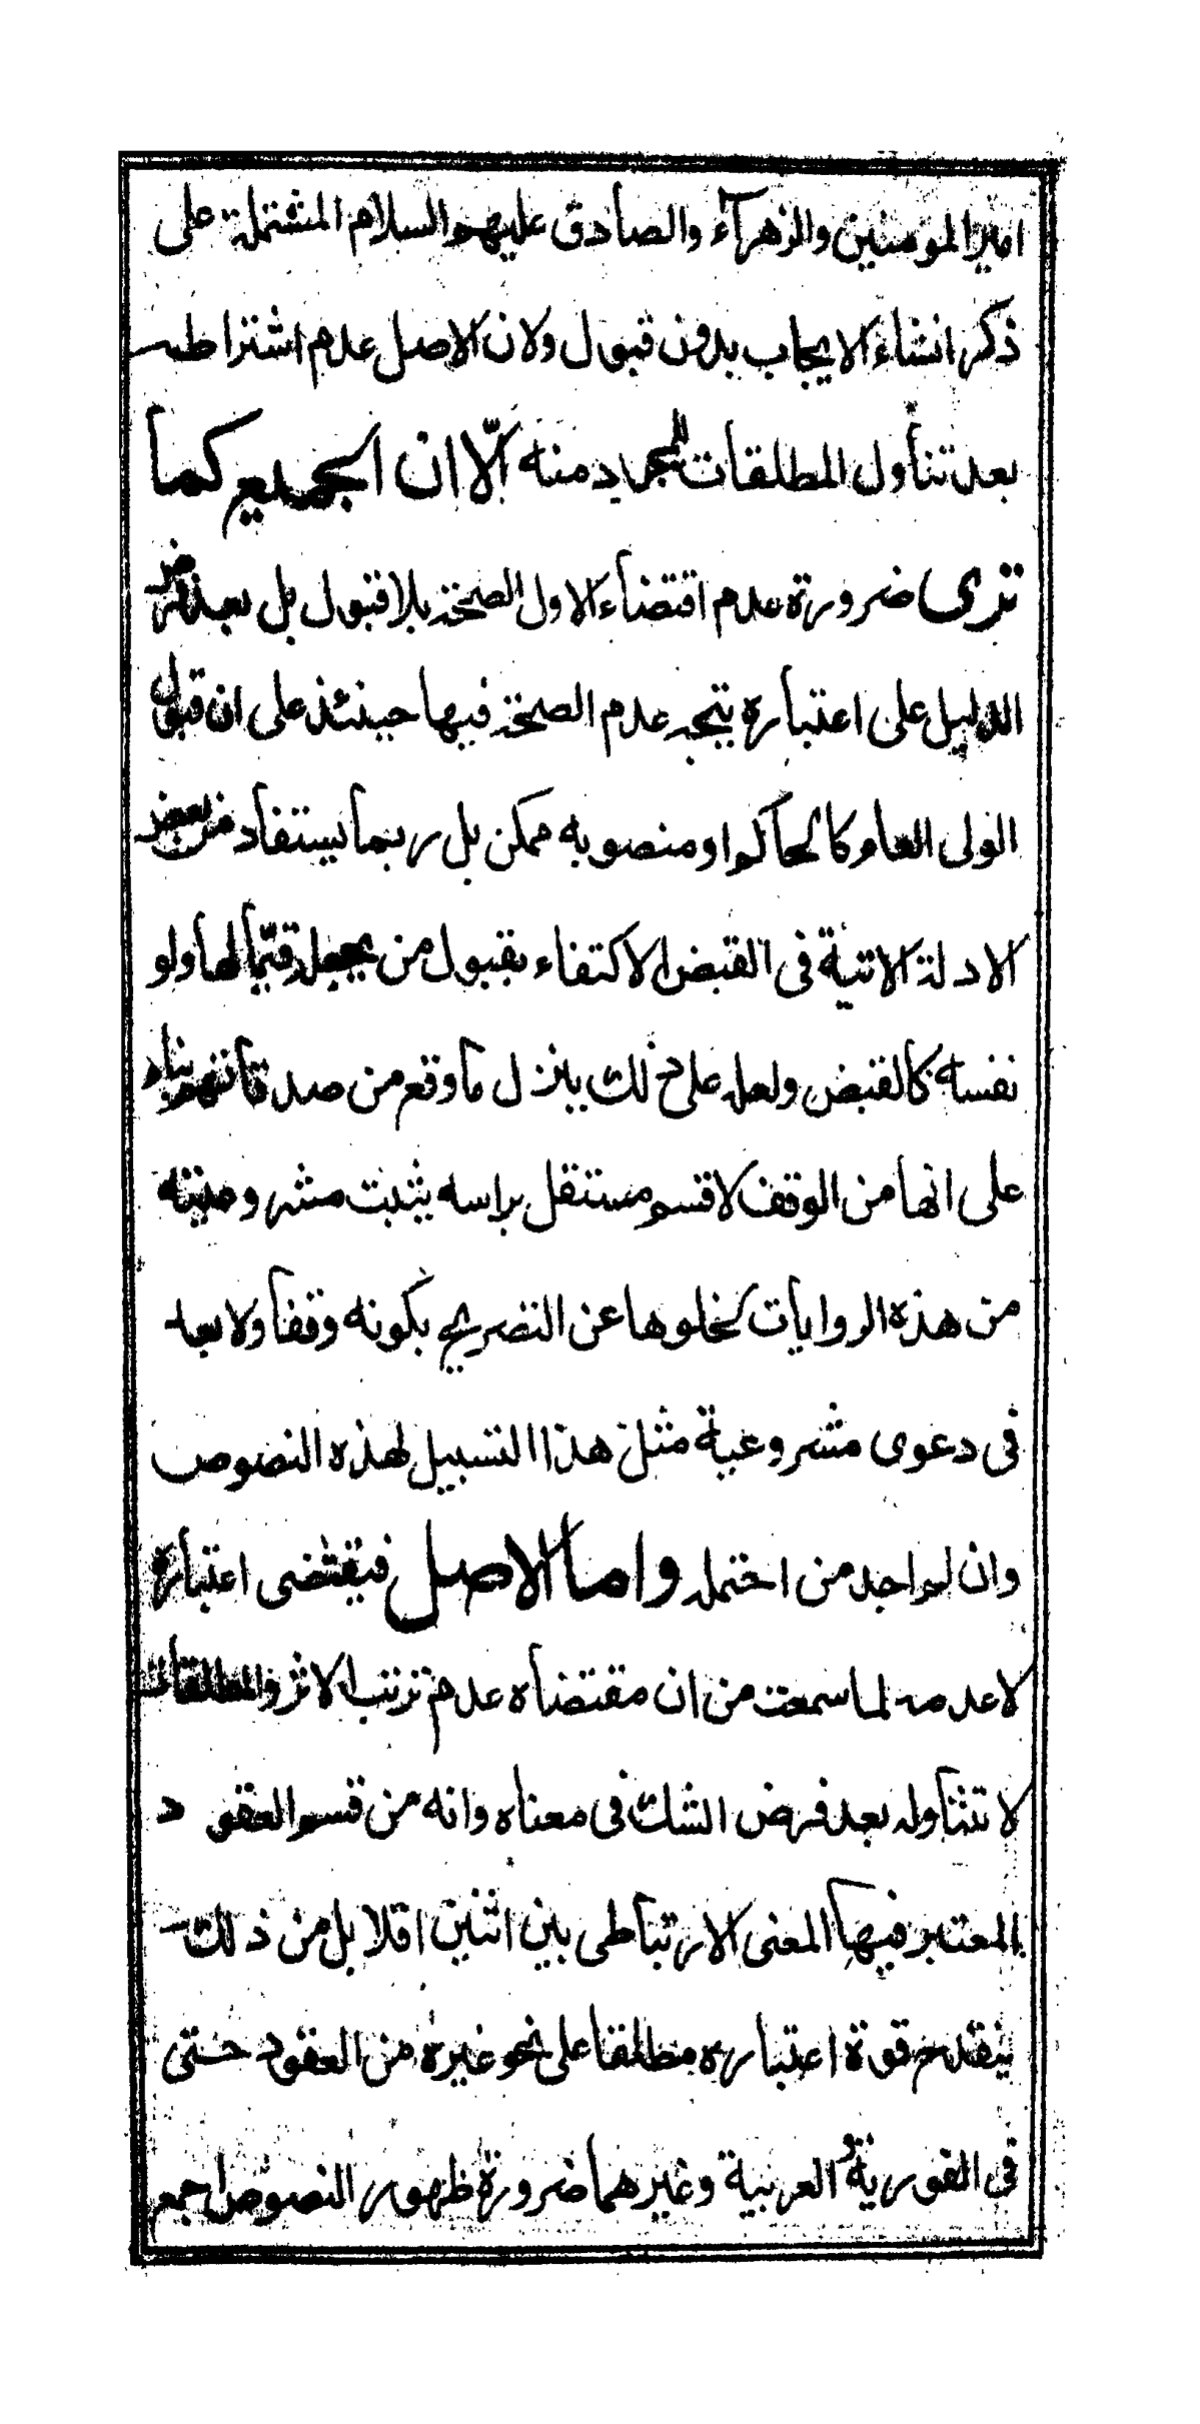 امير المومنين والزهرآء والصادق عليهم السلام المشتملة على
ذكر انشاء الايجاب بدون قبول ولان الاصل عدم اشتراطه
بعد تناول المطلقات للمجرد منه الّا ان الجميع كما
ترى ضرورة عدم اقتضاء الاول الصحة بلا قبول بل بعد فرض
الدليل على اعتباره يتجه عدم الصحة فيها حينئذ على ان قبول
الولى العام كالحاكم او منصوبه ممكن بل ربما يستفاد من بعض
الادلة الاتية فى القبض الاكتفاء بقبول من يجعله قيّما لها ولو
نفسه كالقبض ولعله على ذلك ينزل ما وقع من صدقاتهم بناء
على انها من الوقف لا قسم مستقل براسه يثبت مشروعيته
من هذه الروايات لخلوها عن التصريح بكونه وقفا ولا بعد
فى دعوى مشروعية مثل هذا التسبيل لهذه النصوص
وان لم اجد من احتمله واما الاصل فيقتضى اعتباره
لا عدمه لما سمعت من ان مقتضاه عدم ترتب الاثر والمطلقات
لا تتناوله بعد فرض الشك فى معناه وانه من قسم العقود
المعتبر فيها المعنى الارتباطى بين اثنين اقلا بل من ذلك
ينقدح قوة اعتباره مطلقا على نحو غيره من العقود حتى
فى الفورية والعربية وغيرهما ضرورة ظهور النصوص اجمع